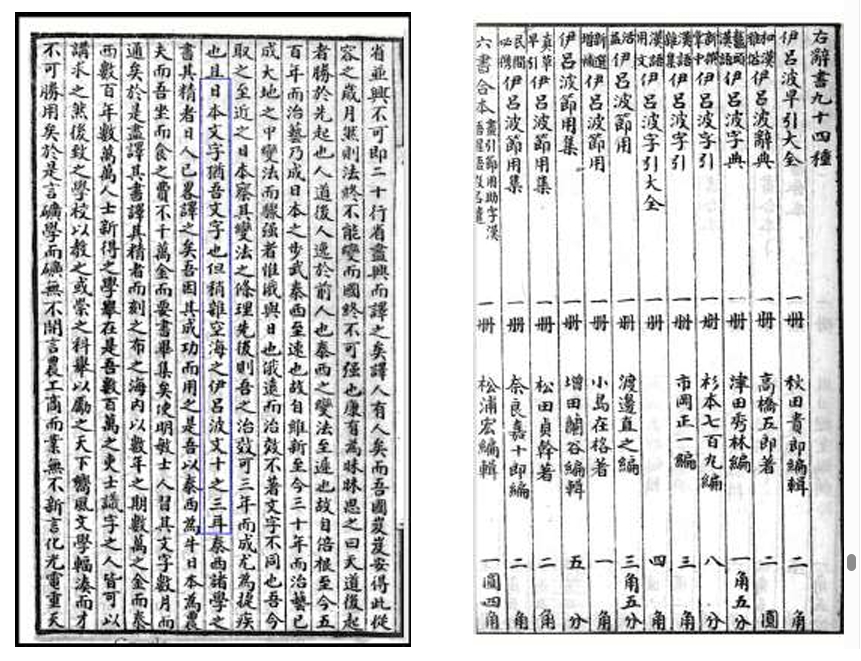 省並興不可即二十行省盡興而譯之矣譯人有人矣而吾國岌岌安得此從
容之歲月然則法終不能變而國終不可强也康有為昧昧思之曰天道後起
者勝於先起也人道後人逸於前人也泰西之變法至遲也故自倍根至今五
百年而治藝乃成日本之步武泰西至速也故自維新至今三十年而治藝已
成大地之中變法而驟强者惟俄與日也俄遠而治效不著文字不同也吾今
取之至近之日本察其變法之條理先後則吾之治效可三年而成尤為捷疾
也且日本文字猶吾文字也但稍雜空海之伊呂波文十之三耳泰西諸學之
書其精者日人已畧譯之矣吾因其成功而用之是吾以泰西為牛日本為農
夫而吾坐而食之費不千萬金而要書畢集矣使明敏士人習其文字數月而
通矣於是盡譯其書譯其精者而刻之布之海內以數年之期數萬之金而泰
西數百年數萬萬人士新得之學舉在是吾數百萬之吏士識字之人皆可以
講求之然後致之學校以教之或崇之科舉以勵之天下嚮風文學輻湊而才
不可勝用矣於是言礦學而礦無不開言農工商而業無不新言化光電重天
右辭書九十四種
伊呂波早引大全 一册 秋田貴郎編輯 二角
和漢雅俗伊呂波辭典 一册 高橋五郎著 二圓
鼇頭漢語伊呂波字典 一册 津田秀林編 一角五分
新撰掌中伊呂波字引 一册 杉本七百丸編 八分
漢語雜集伊呂波字引 一册 市岡正一編 三角
漢語用文伊呂波字引大全 一册 四角
活益伊呂波節用 一册 渡邊直之編 三角五分
新選增補伊呂波節用 一册 小島在格著 一角
伊呂波節用集 一册 增田蘭谷編輯 五分
真草早引伊呂波節用集 一册 松田貞幹著 二角
民間必携伊呂波節用集 一册 奈良嘉十郎編 二角
六書合本 一册 松浦宏編輯 一圓四角